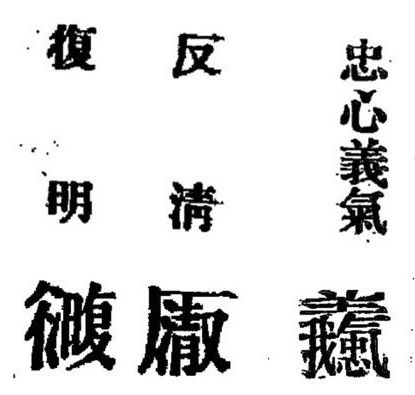 忠心義氣
反清
復明